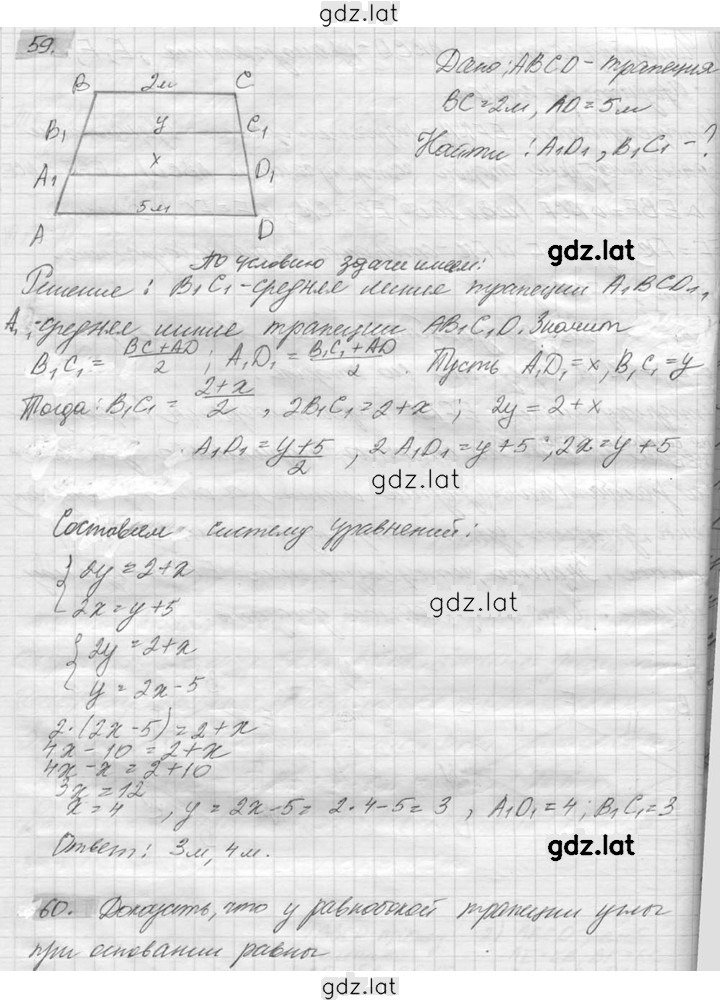 gdz.lat
59.
B 2м C
B₁ y C₁
A₁ x D₁
A 5м D
Дано: ABCD - трапеция
BC = 2м, AD = 5м
Найти: A₁D₁, B₁C₁ - ?
gdz.lat
По условию задачи имеем:
Решение: B₁C₁ - средняя линия трапеции A₁BCD₁,
A₁ - средняя линия трапеции AB₁C₁D. Значит
B₁C₁ = (BC + AD)/2; A₁D₁ = (B₁C₁ + AD)/2. Пусть A₁D₁ = x, B₁C₁ = y
Тогда: B₁C₁ = (2+x)/2, 2B₁C₁ = 2+x; 2y = 2+x
A₁D₁ = (y+5)/2, 2A₁D₁ = y+5; 2x = y+5
gdz.lat
Составим систему уравнений:
{ 2y = 2+x
2x = y+5
gdz.lat
{ 2y = 2+x
y = 2x-5
2·(2x-5) = 2+x
4x - 10 = 2+x
4x - x = 2+10
3x = 12
x = 4, y = 2x-5 = 2·4-5 = 3, A₁D₁ = 4; B₁C₁ = 3
Ответ: 3м, 4м.
gdz.lat
60. Доказать, что у равнобокой трапеции углы
при основании равны
gdz.lat